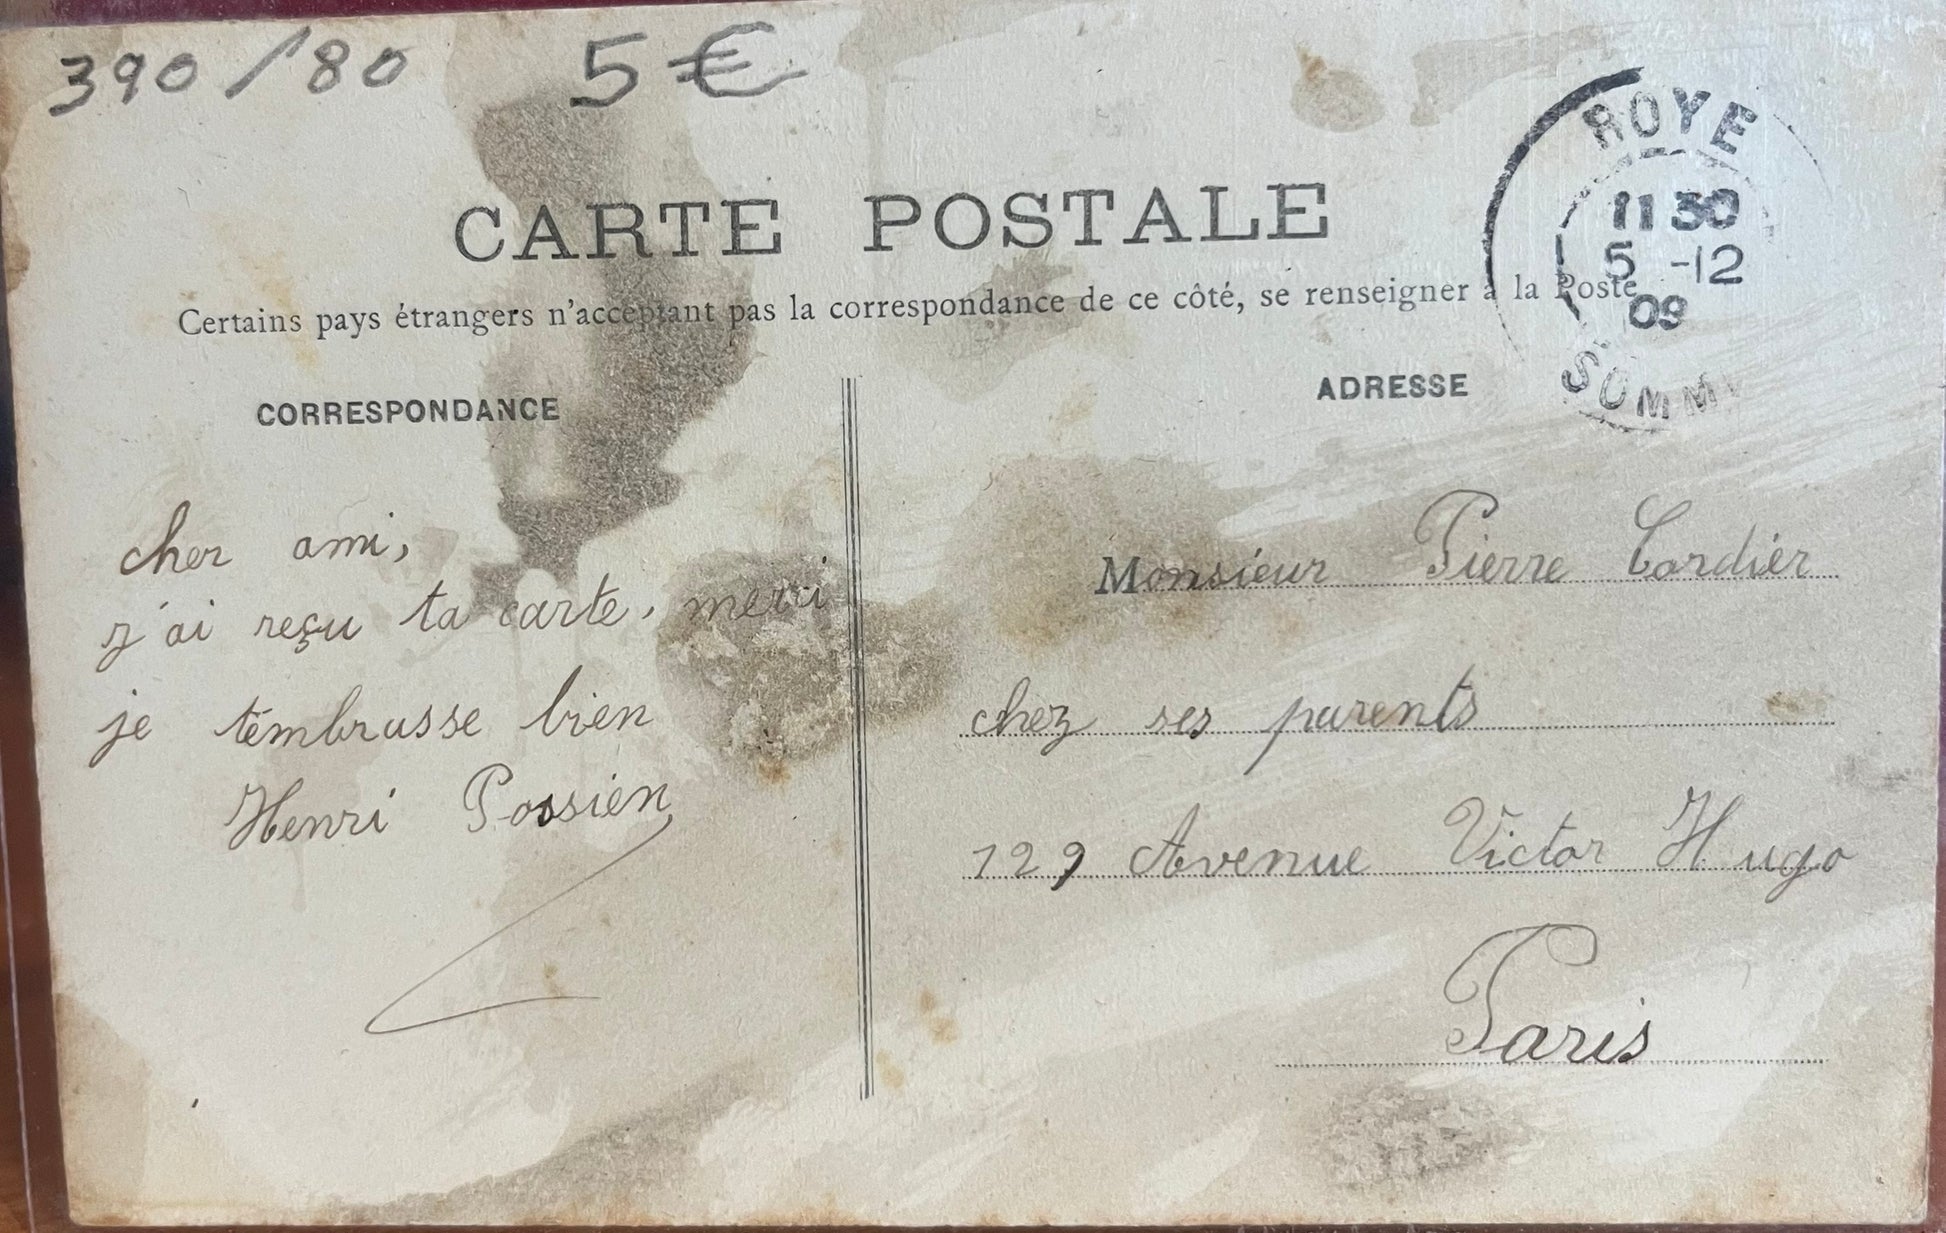 390/80 5€
CARTE POSTALE
Certains pays étrangers n'acceptant pas la correspondance de ce côté, se renseigner à la Poste
CORRESPONDANCE
cher ami,
j'ai reçu ta carte, merci
je t'embrasse bien
Henri Possien
ROYE
11 30
5 -12
09
SOMME
ADRESSE
Monsieur Pierre Cordier
chez ses parents
129 Avenue Victor Hugo
Paris